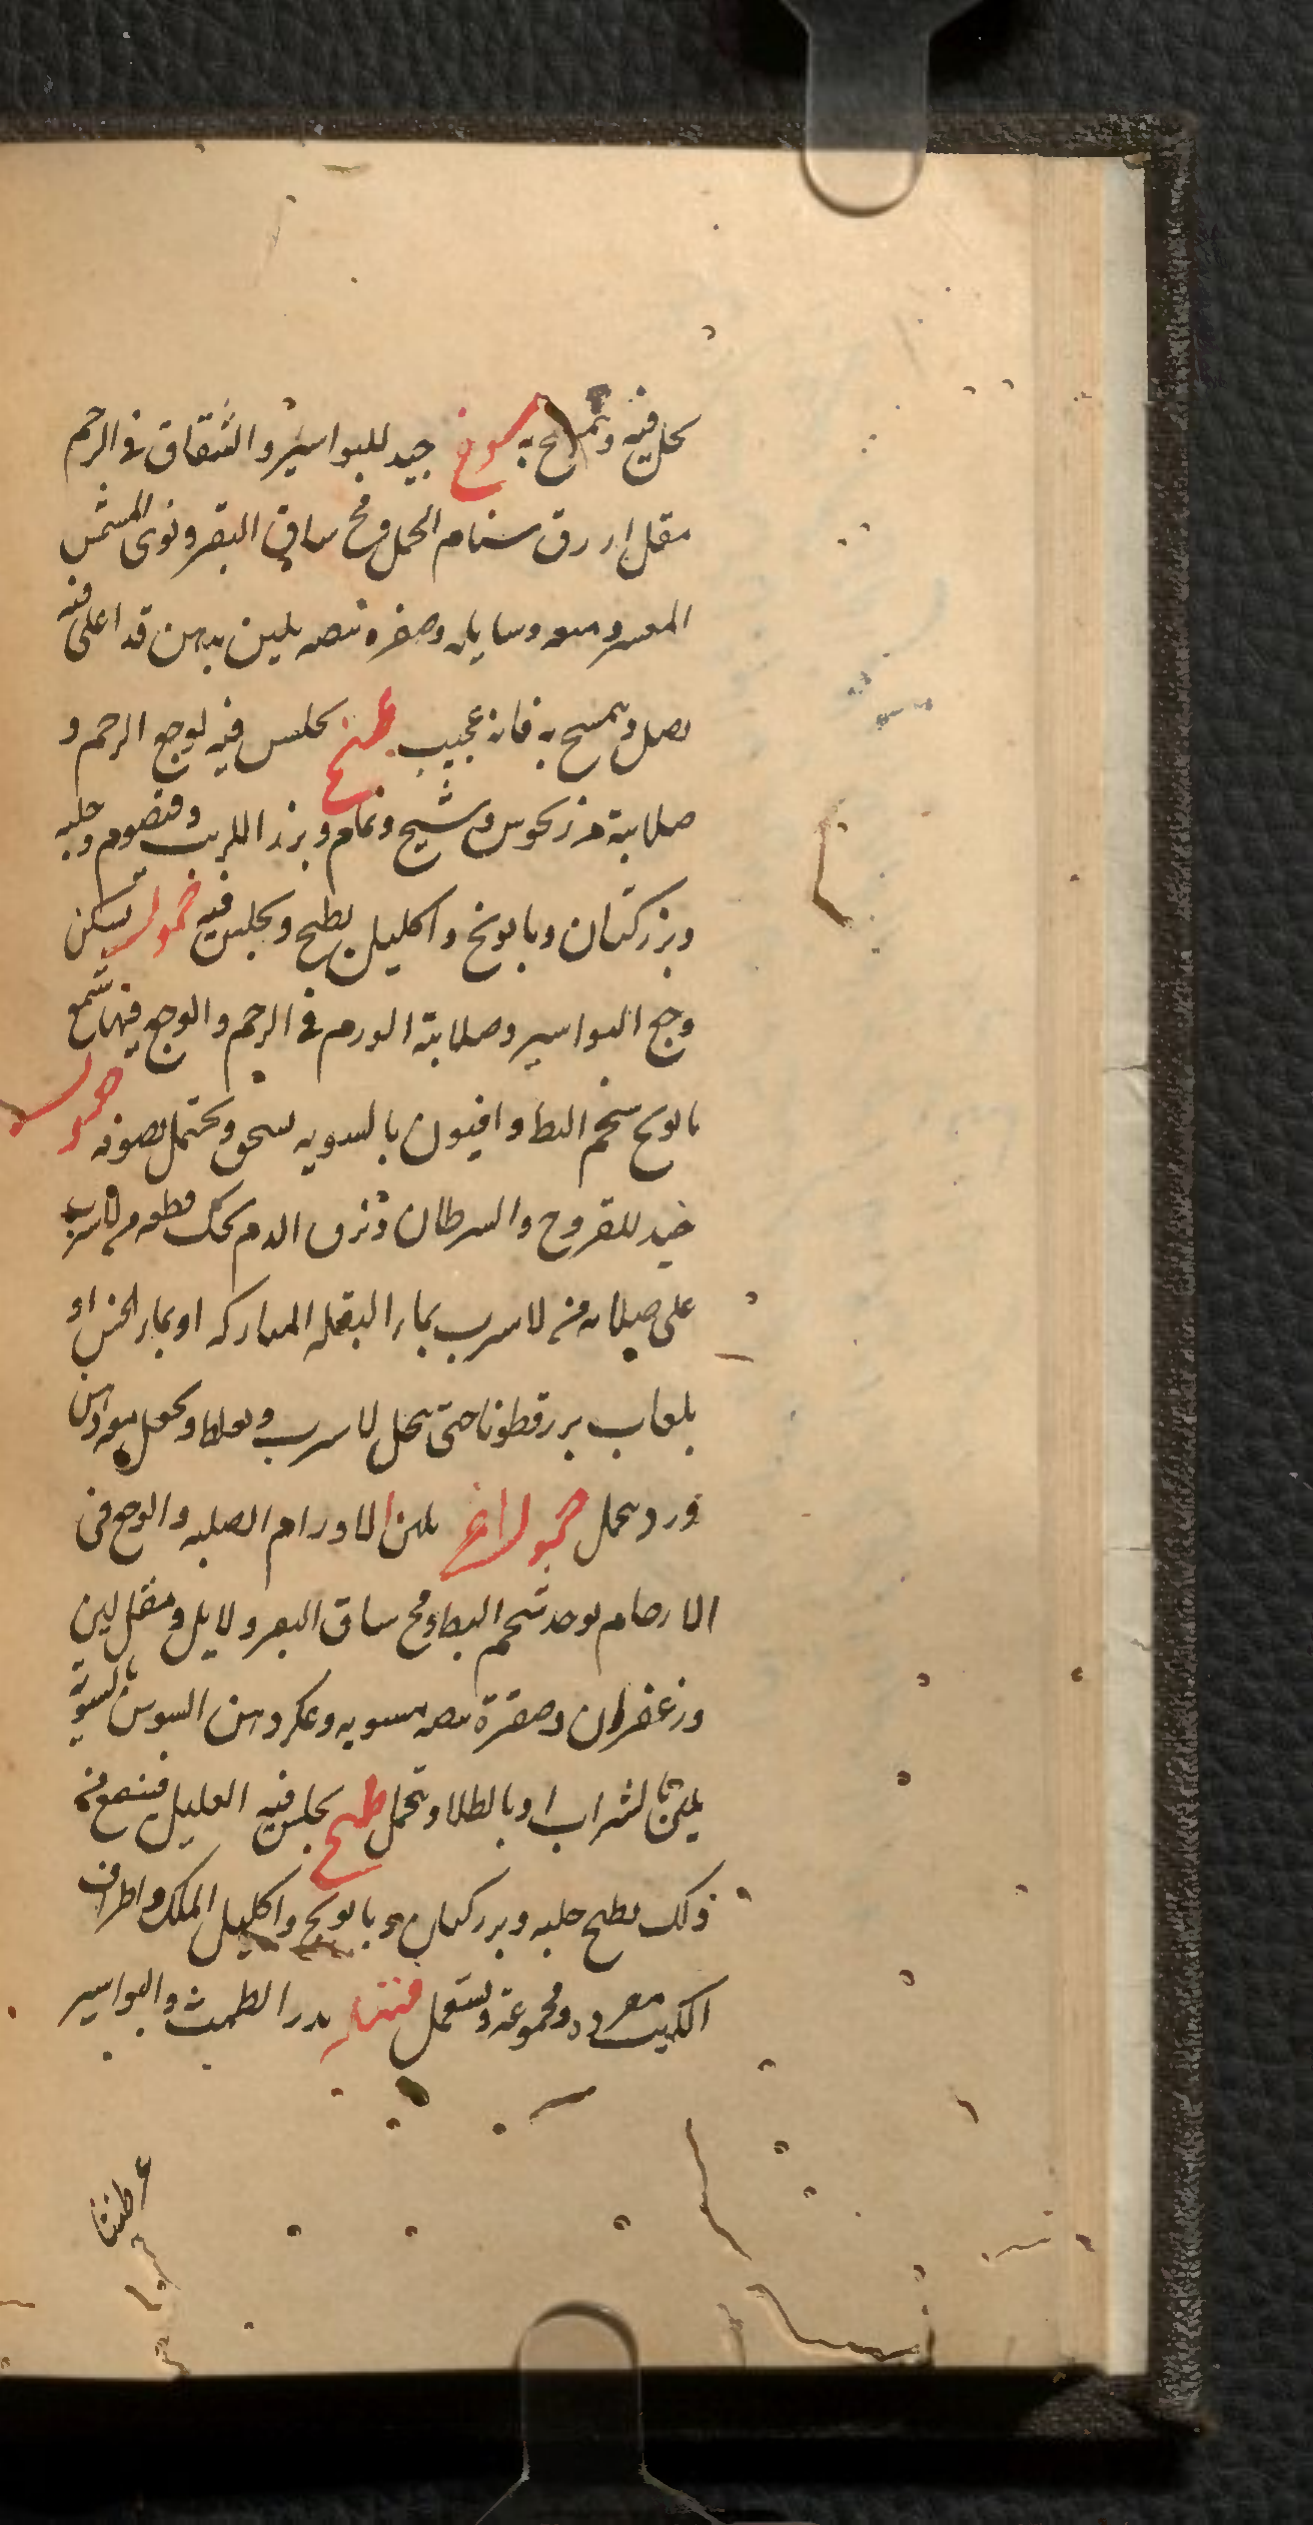 يحل فيه ويمسح به مسوخ جيد للبواسير والشقاق في الرحم
مقل ازرق سنام الجمل ومخ ساق البقر ونوى المشمش
وصفره بيضه يلين بدهن قد اغلى فيه
بصل ويمسح به فانه عجيب طبيخ يجلس فيه لوجع الرحم و
صلابته مرزنجوش وشيح ونمام وبزر الكرنب وقيصوم وحلبه
وبزركتان وبابونج واكليل يطبخ ويجلس فيه حمول يسكن
وجع البواسير وصلابة الورم في الرحم والوجع فيها شمع
بابونج شحم البط وافيون بالسويه يسحق ويحتمل بصوفه حمول
جيد للقروح والسرطان ونزف الدم يحك قطعه من لاسرب
على صلابه من لاسرب بماء البقله المباركه او بماء الخس او
بلعاب بزرقطونا حتى ينحل لاسرب ويغلظ ويجعل معه دهن
ورد ويحمل حمول اخر يلين الاورام الصلبه والوجع في
الارحام يوخذ شحم البط ومخ ساق البقر ولايل ومقل لين
وزعفران وصفرة بيضه مشويه وعكر دهن السوسن بالسويه
يلين بالشراب او بالطلا ويحمل طبيخ يجلس فيه العليل فينفع من
ذلك يطبخ حلبه وبزركتان وبابونج واكليل الملك واطراف
الكرنب مفرده ومجموعة ويستعمل يدر الطمث والبواسير